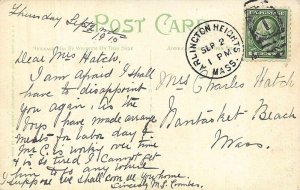 Thursday Sept
1910
POST CARD
ARLINGTON HEIGHTS
SEP 2
1 PM
MASS.
Dear Mrs Hatch.
I am afraid I shall
have to disappoint
you again, as the
boys have made arrange
ments for Labor day &
Mr C. is working over time
& is so tired I cannot get
him to go any where
I suppose we shall soon see you home.
Sincerely M.S. Comber.
Mrs Charles Hatch
Nantasket Beach
Mass.